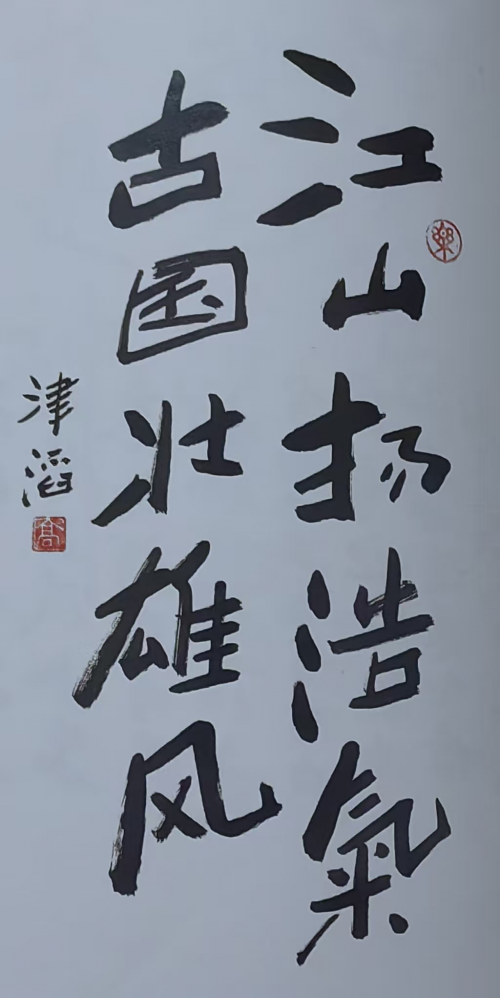 江山扬浩氣
古国壮雄风
津滔